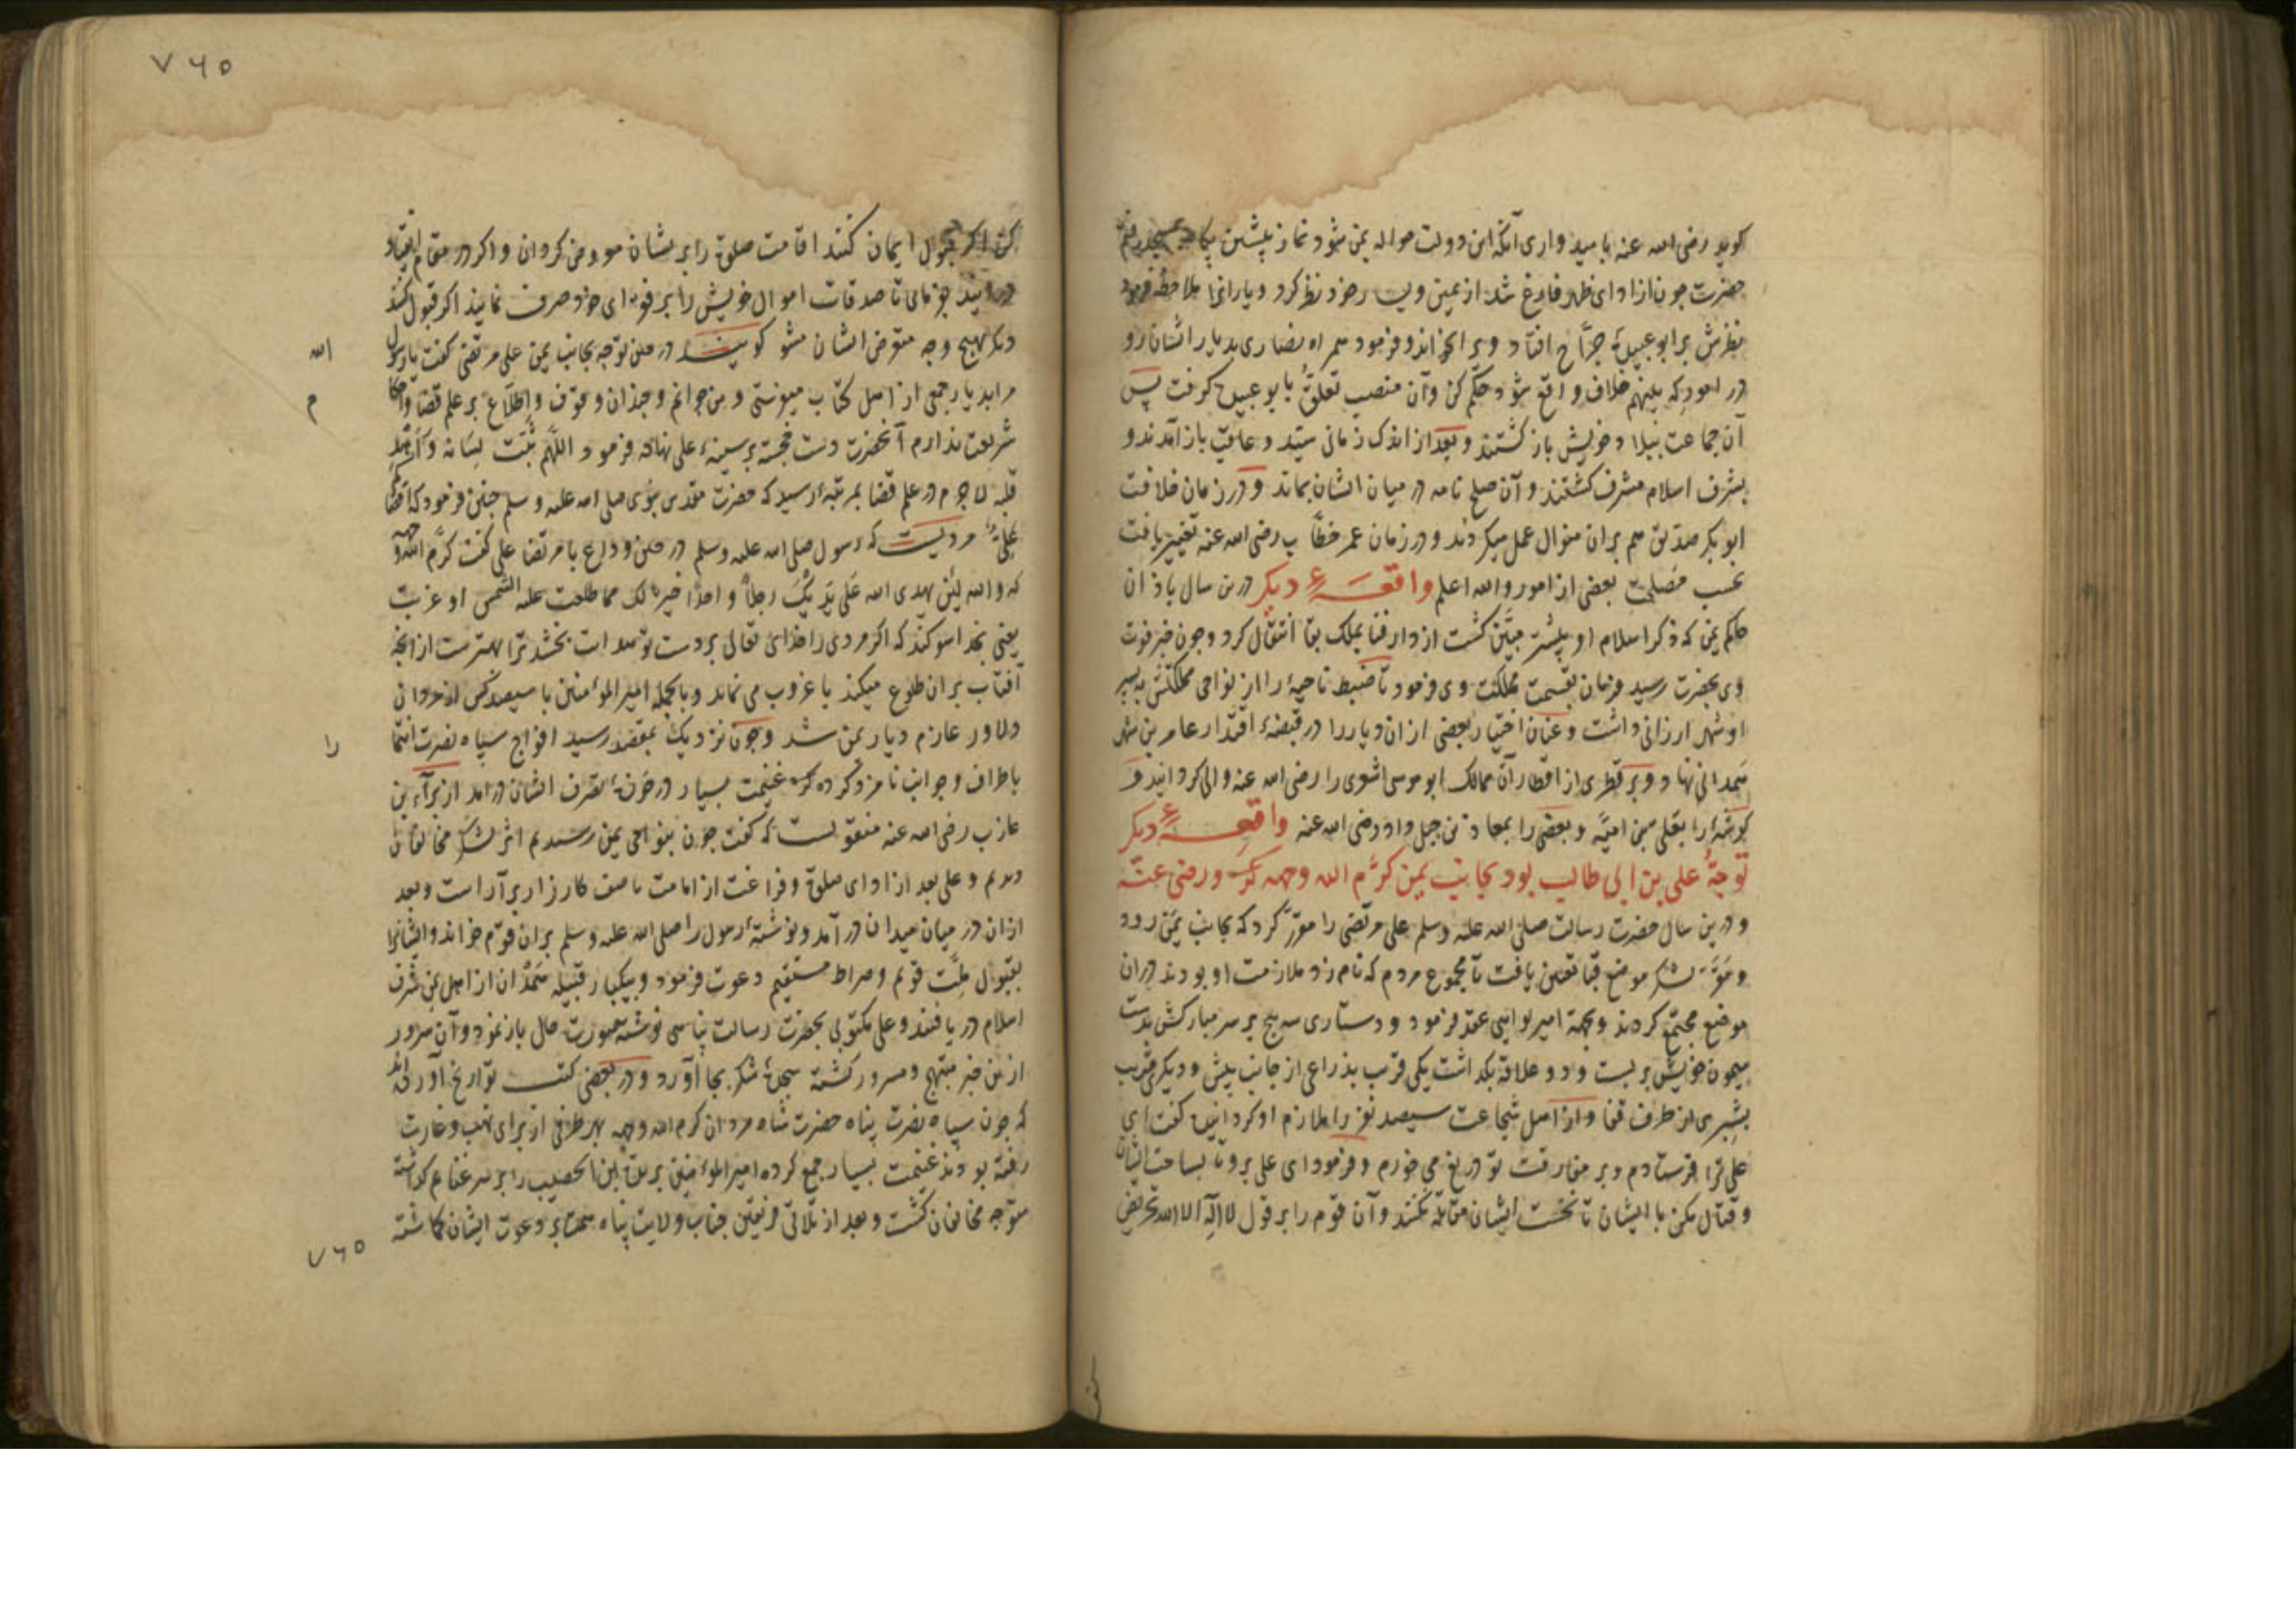 کوید رضی الله عنه بامید واری آنکه این دولت حواله بمن شود نماز پیشین بکاه بمسجد رفتم
حضرت جون از ادای ظهر فارغ شد از یمین و یسار خود نظر کرد و یارانرا ملاحظه فرمود
نظرش بر ابو عبیدۀ جرّاح افتاد ویرا بخواند و فرمود همراه نصاری بدیار ایشان رو
در امور که بینهم خلاف واقع شود حکم کن و آن منصب تعلّق بابو عبیده کرفت پس
آن جماعت ببلاد خویش باز کشتند و بعد از اندک زمانی سیّد و عاقب باز آمدند و
بشرف اسلام مشرف کشتند و آن صلح نامه در میان ایشان بماند و در زمان خلافت
ابو بکر صدیق هم بران منوال عمل میکردند و در زمان عمر خطّاب رضی الله عنه تغییر یافت
بحسب مصلحت بعضی از امور والله اعلم واقعۀ دیکر درین سال باذان
حاکم یمن که ذکر اسلام او پیشتر مبیّن کشت از دار فنا بملک بقا انتقال کرد و جون خبر فوت
وی بحضرت رسید فرمان بقسمت مملکت وی فرمود تا ضبط ناحیۀ را از نواحی مملکتش به پسر
او شهر ارزانی داشت و عنان اختیار بعضی ازان دیار را در قبضۀ اقتدار عامر بن شهر
همدانی نهاد و بر قطری از اقطار آن ممالک ابو موسی اشعری را رضی الله عنه والی کردانید و
کوشۀ را بیعلی بن امیّه و بعضی را بمعاذ بن جبل داد رضی الله عنه واقعۀ دیکر
توجّه علی بن ابی طالب بود بجانب یمن کرّم الله وجهه و رضی عنه
و درین سال حضرت رسالت صلی الله علیه وسلم علی مرتضی را مقرّر کرد که بجانب یمن رود
و مقرّ لشکر موضع قبا تعیین یافت تا مجموع مردم که نام زد ملازمت او بودند دران
موضع مجتمع کردند و بجهة امیر لوایی عقد فرمود و دستاری سه پیچ بر سر مبارکش بدست
میمون خویش بر بست و دو علاقه بکذاشت یکی قرب بذراعی از جانب پیش و دیکری قریب
بشبری از طرف قفا و از اهل شجاعت سیصد نفر را ملازم او کردانید کفت ای
علی ترا فرستادم و بر مفارقت تو دریغ می خورم و فرمود ای علی برو تا بساحت ایشان
و قتال مکن با ایشان تا نخست ایشان مقاتله نکنند و آن قوم را بر قول لا اله الا الله تحریض
۷۶۵
کن اکر قبول ایمان کنند اقامت صلوة را بریشان معروض کردان و اکر در مقام انقیاد
درآیند بفرمای تا صدقات اموال خویش را بر فقرای خود صرف نمایند اکر قبول کنند
دیکر بهیچ وجه متعرض ایشان مشو کویند در حین توجه بجانب یمن علی مرتضی کفت یا رسول
الله
مرا بدیار جمعی از اهل کتاب میفرستی و من جوانم و چندان وقوف و اطّلاع بر علم قضا و احکام
شریعت ندارم آنحضرت دست خجسته بر سینۀ علی نهاده فرمود اللّهم ثبّت لسانه و اهد
قلبه لا جرم در علم قضا بمرتبۀ رسید که حضرت مقدس نبوی صلی الله علیه وسلم جنین فرمود که اقضاکم
علی مرویست که رسول صلی الله علیه وسلم در حین وداع با مرتضا علی کفت کرّم الله وجهه
که والله لئن یهدی الله علی یدیک رجلاً واحداً خیر لک مما طلعت علیه الشمس او غربت
یعنی بخدا سوکند که اکر مردی را خدای تعالی بر دست تو هدایت بخشد ترا بهتر ست از انچه
آفتاب بران طلوع میکند یا غروب می نماید و بالجمله امیر المؤمنین با سیصد کس از مردان
دلاور عازم دیار یمن شد و جون نزدیک بمقصد رسید افواج سپاه نصرت انتما
را
باطراف و جوانب نامزد کرده که غنیمت بسیار در حوزۀ تصرف ایشان درآمد از براء بن
عازب رضی الله عنه منقولست که کفت جون بنواحی یمن رسیدیم اثر لشکر مخالفان
دیدیم و علی بعد از ادای صلوة و فراغت از امامت ما صف کارزار برآراست و بعد
ازان در میان میدان درآمد و نوشتۀ رسول را صلی الله علیه وسلم بران قوم خواند و ایشانرا
بقبول ملّت قویم و صراط مستقیم دعوت فرمود و بیکبار قبیله همدان از اهل یمن شرف
اسلام دریافتند و علی مکتوبی بحضرت رسالت پناهی نوشته صورت حال باز نمود و آن سرور
ازین خبر مبتهج و مسرور کشته سجدۀ شکر بجا آورد و در بعضی کتب تواریخ آورده اند
که جون سپاه نصرت پناه حضرت شاه مردان کرم الله وجهه بهر طرفی از برای نهب و غارت
رفته بودند غنیمت بسیار جمع کرده امیر المؤمنین بریدة بن الحصیب را بر سر غنایم کذاشته
متوجه مخالفان کشت و بعد از تلاقی فریقین جناب ولایت پناه همت بر دعوت ایشان کماشته
۷۶۵